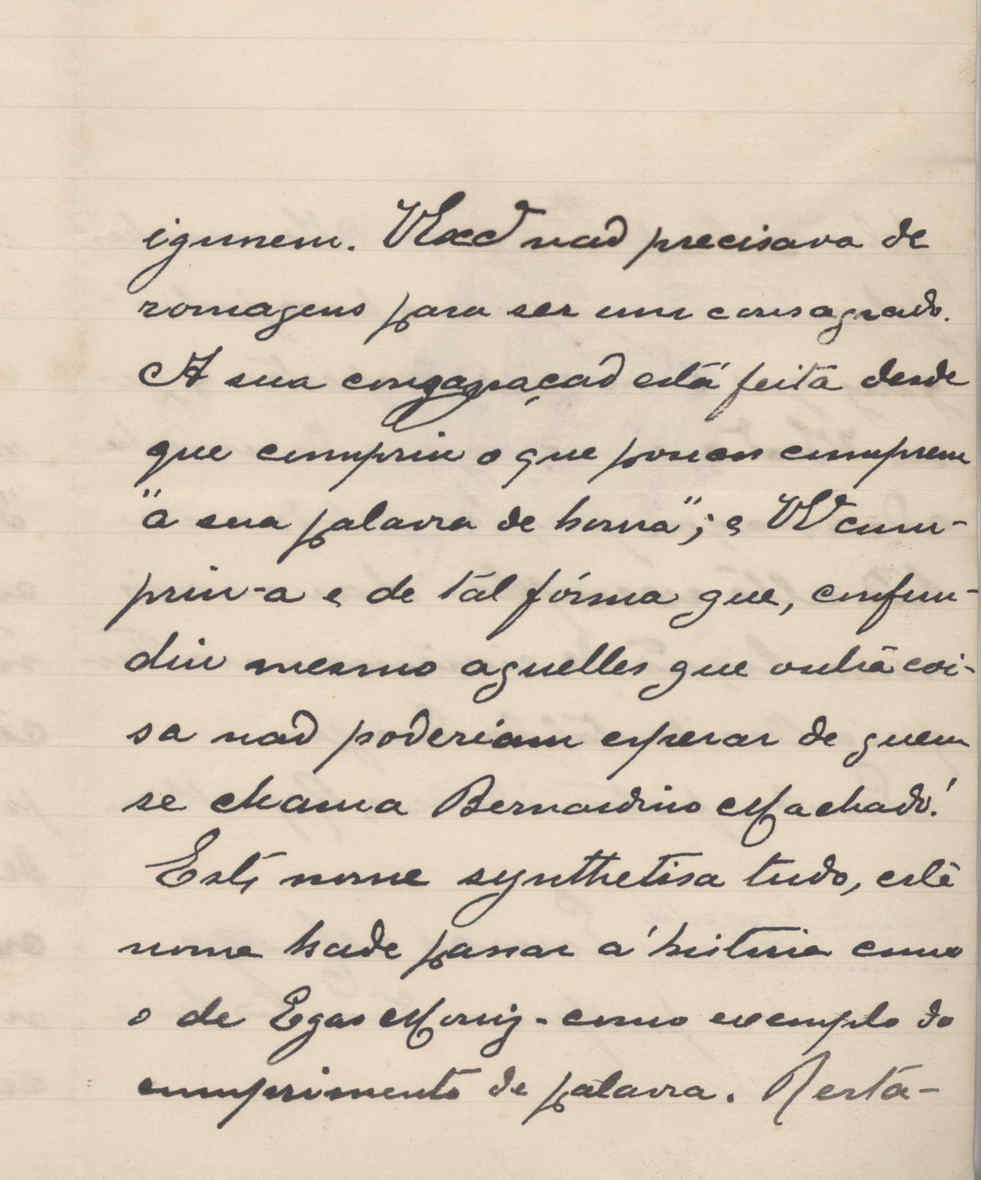 ignorem. VExcª não precisava de
romagens para ser um consagrado.
A sua consagração está feita desde
que cumpriu o que poucos cumprem
"a sua palavra de honra"; e VE cum-
priu-a e de tál fórma que, confun-
diu mesmo aquelles que outra coi-
sa não poderiam esperar de quem
se chama Bernardino Machado!
Este nome synthetisa tudo, este
nome hade passar á historia como
o de Egas Moniz - como exemplo do
cumprimento de palavra. Resta-